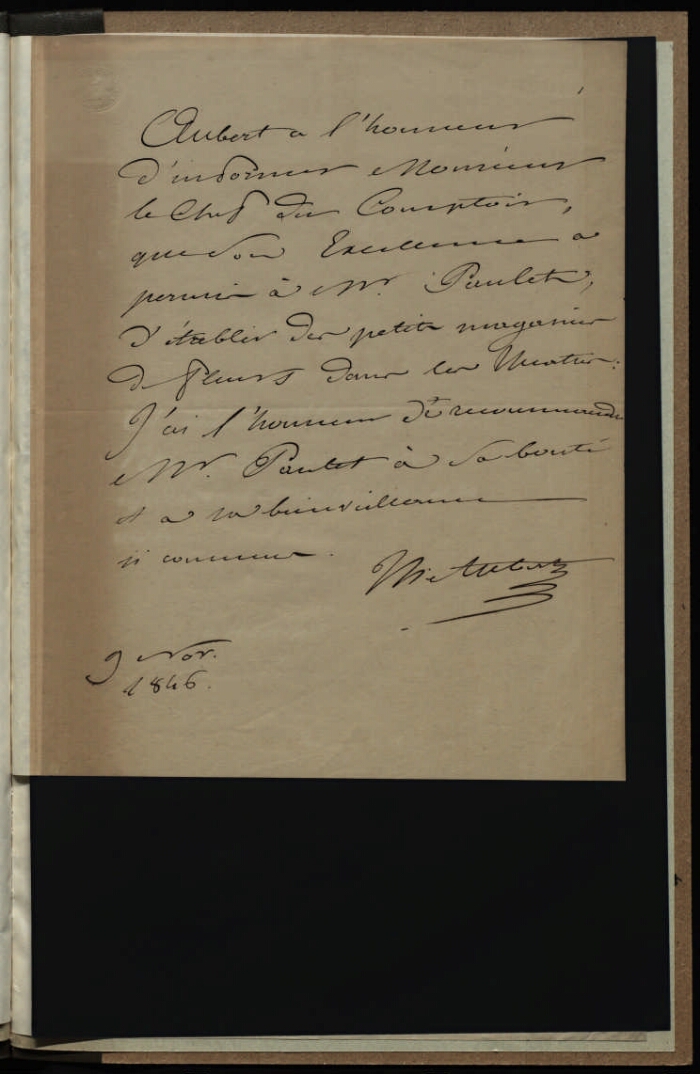 Aubert a l'honneur
d'informer Monsieur
le Chef du Comptoir,
que Son Excellence a
permis à Mr. Paulet,
d'établir des petits magasins
de fleurs dans les théatres:
J'ai l'honneur de recommander
Mr. Paulet à Sa bonté
et a sa bienveillance
si connue.
9 Nov.
1846.